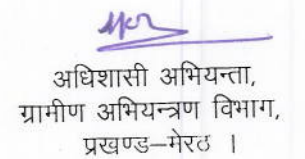 अधिशासी अभियन्ता,
ग्रामीण अभियन्त्रण विभाग,
प्रखण्ड–मेरठ ।